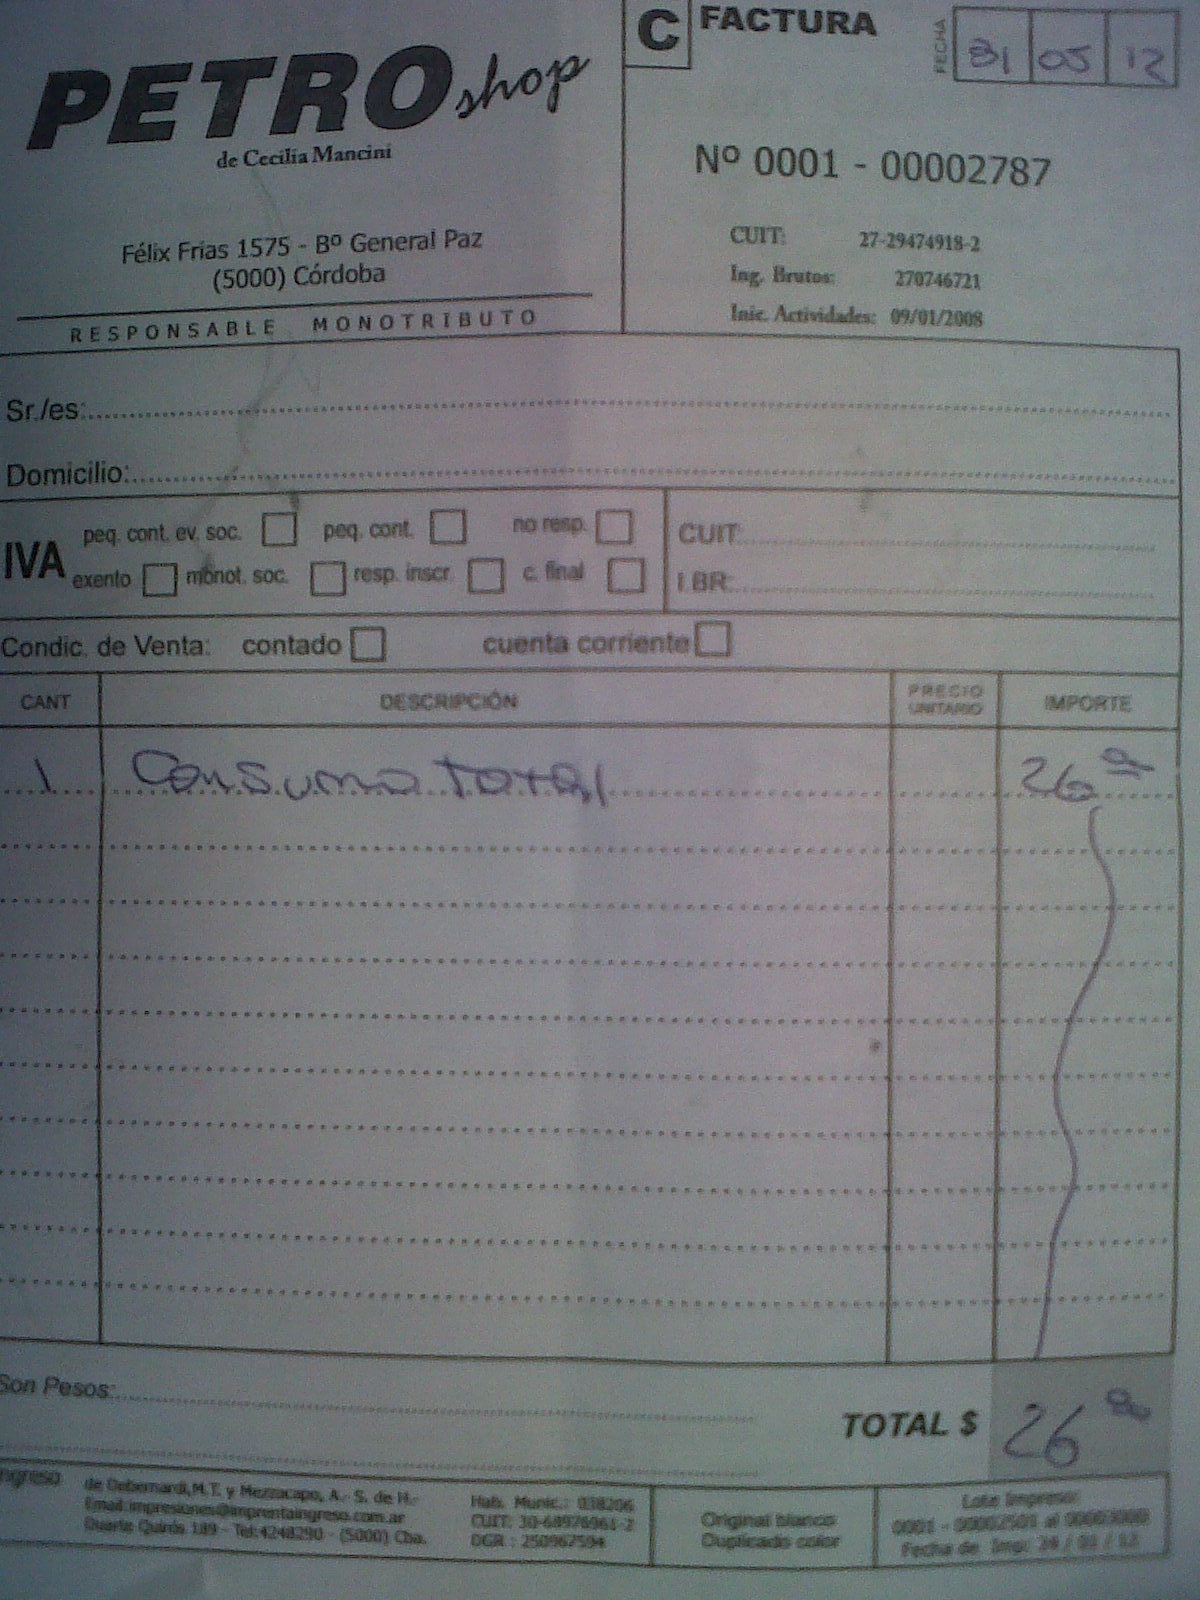 PETRO shop
de Cecilia Mancini
Félix Frias 1575 - Bº General Paz
(5000) Córdoba
RESPONSABLE MONOTRIBUTO
C FACTURA
FECHA 31 05 12
Nº 0001 - 00002787
CUIT: 27-29474918-2
Ing. Brutos: 270746721
Inic. Actividades: 09/01/2008
Sr./es:
Domicilio:
IVA
peq. cont. ev. soc. peq. cont. no resp.
exento monot. soc. resp. inscr. c. final
CUIT:
I.BR:
Condic. de Venta: contado cuenta corriente
CANT DESCRIPCIÓN PRECIO UNITARIO IMPORTE
1 Consumo total 26
Son Pesos:
TOTAL $ 26
de Debernardi, M.T. y Mezzacapo, A.- S. de H.-
Email: impresiones@imprentaingreso.com.ar
Duarte Quirós 189 - Tel: 4248290 - (5000) Cba.
Hab. Munic.: 038206
CUIT: 30-68976961-2
DGR : 250967594
Original blanco
Duplicado color
Lote Impreso:
0001 - 00002501 al 00003000
Fecha de Imp: